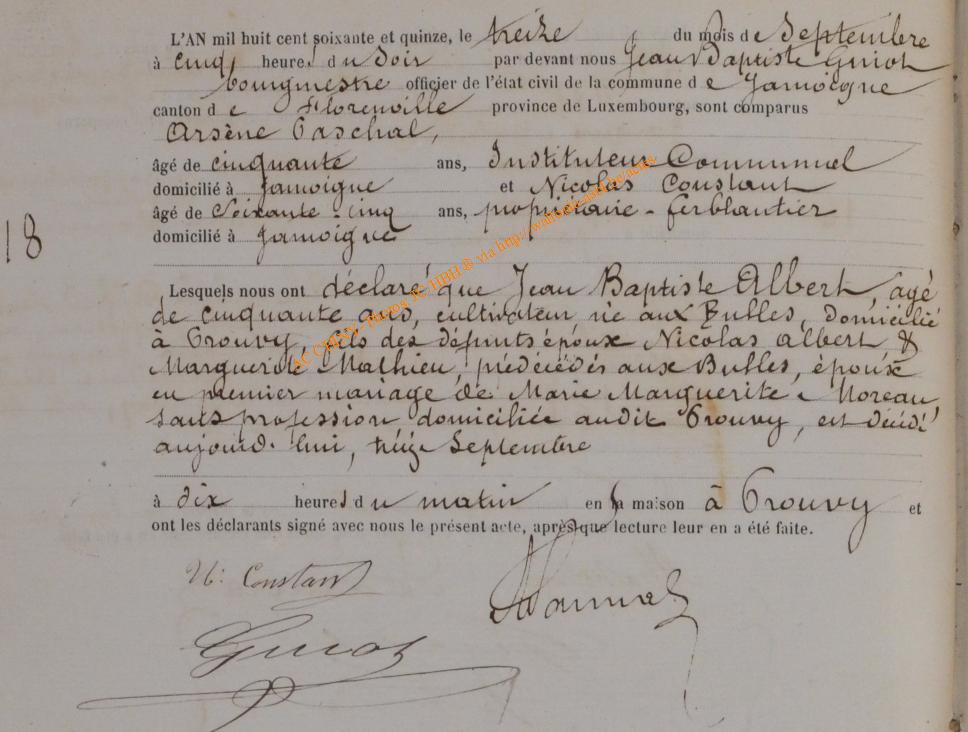 L'AN mil huit cent soixante et quinze, le treize du mois de Septembre
à cinq heures du Soir par devant nous Jean Baptiste Guiot
bourgmestre officier de l'état civil de la commune de Jamoigne
canton de Florenville province de Luxembourg, sont comparus
Arsène Paschal,
âgé de cinquante ans, Instituteur Communal
domicilié à Jamoigne et Nicolas Constant
âgé de Soixante-cinq ans, propriétaire-ferblantier
domicilié à Jamoigne
18
Lesquels nous ont déclaré que Jean Baptiste Albert, agé
de cinquante ans, cultivateur, né aux Bulles, domicilié
à Prouvy, fils des défunts époux Nicolas Albert &
Marguerite Mathieu, prédécédés aux Bulles, époux
en premier mariage de Marie Marguerite Moreau,
sans profession domiciliée audit Prouvy, est décédé
aujourd'hui, treize Septembre
à dix heures du matin en sa maison à Prouvy et
ont les déclarants signé avec nous le présent acte, après que lecture leur en a été faite.
N. Constant
Guiot